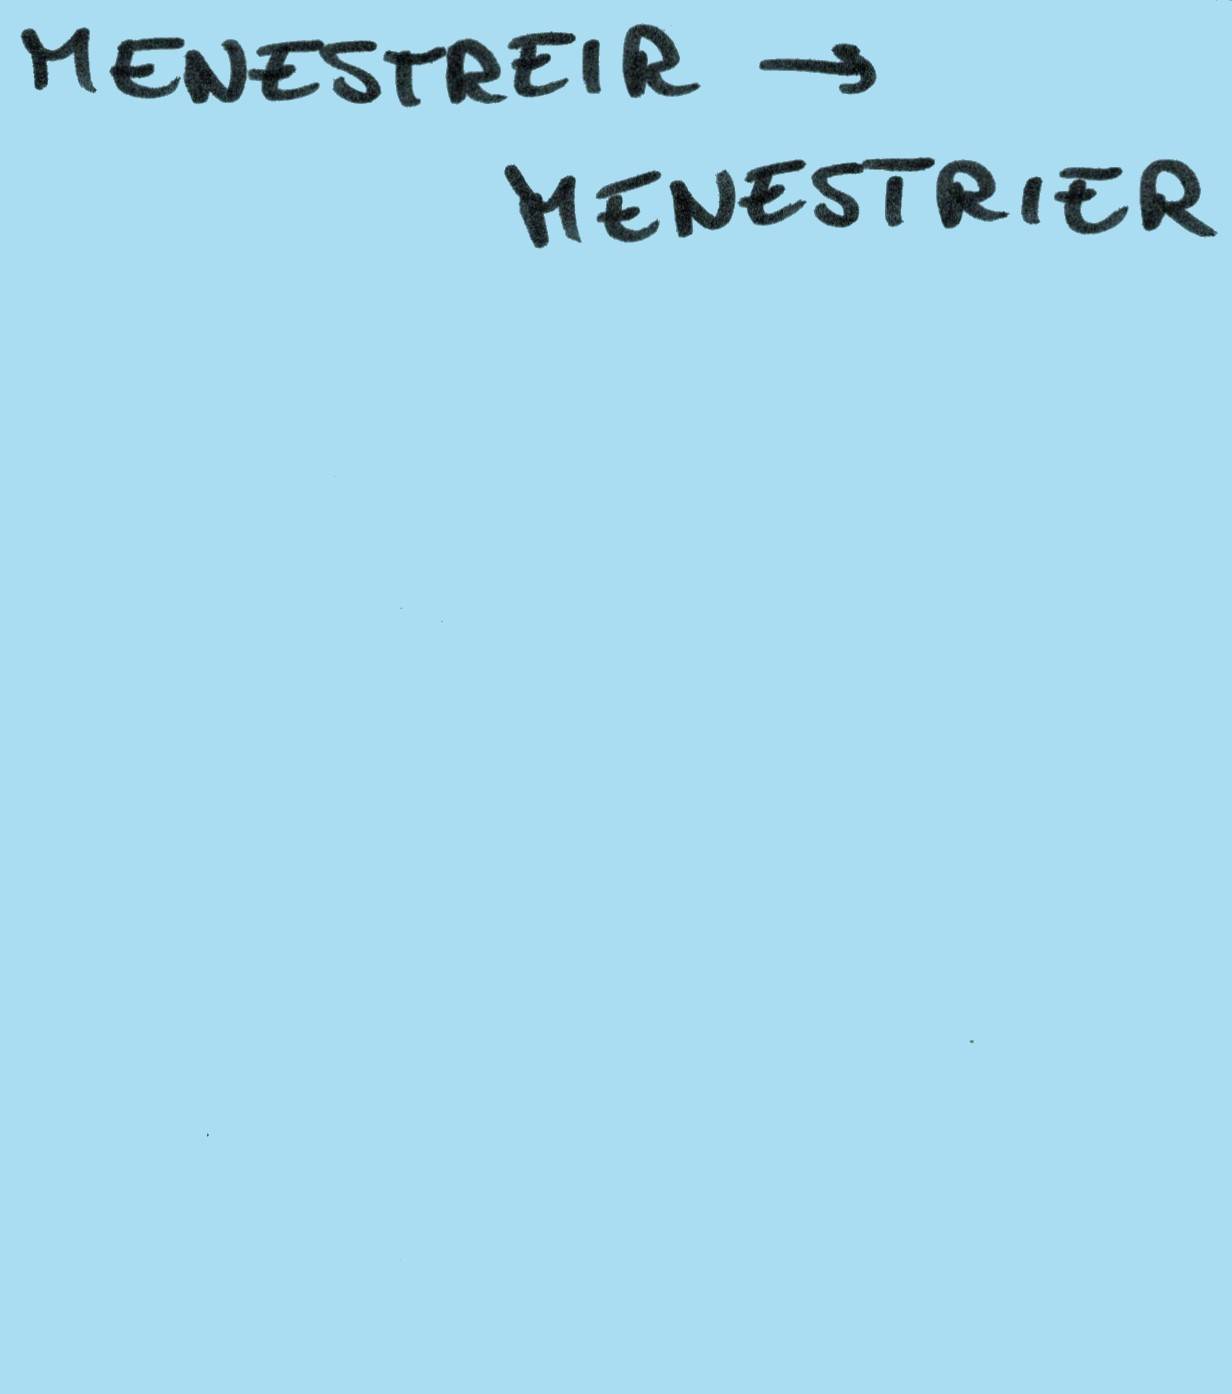 MENESTREIR →
MENESTRIER